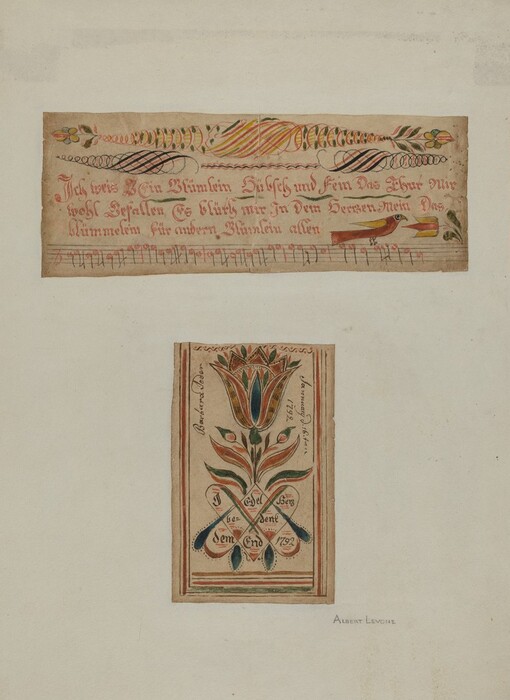 Ich weis Ein Blümlein Hübsch und Fein Das Thut Mir
wohl Gefallen Es blüth mir In dem Hertzen Mein Das
blümmelein für andern Blümlein allen
Barbara
January
1792
edel Herz
be denk
dem End 1792
ALBERT LEVONE